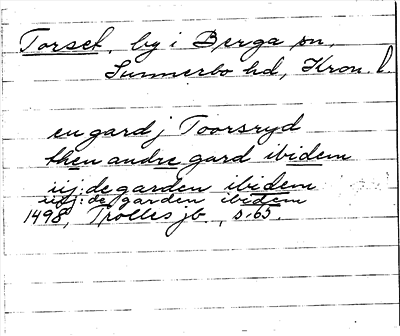 Torset, by i Berga sn,
Sunnerbo hd, Kron. l.
en gard j Toorsryd
then andre gard ibidem
iij: de garden ibidem
iiij: de garden ibidem
1498, Trolles jb, s. 65.